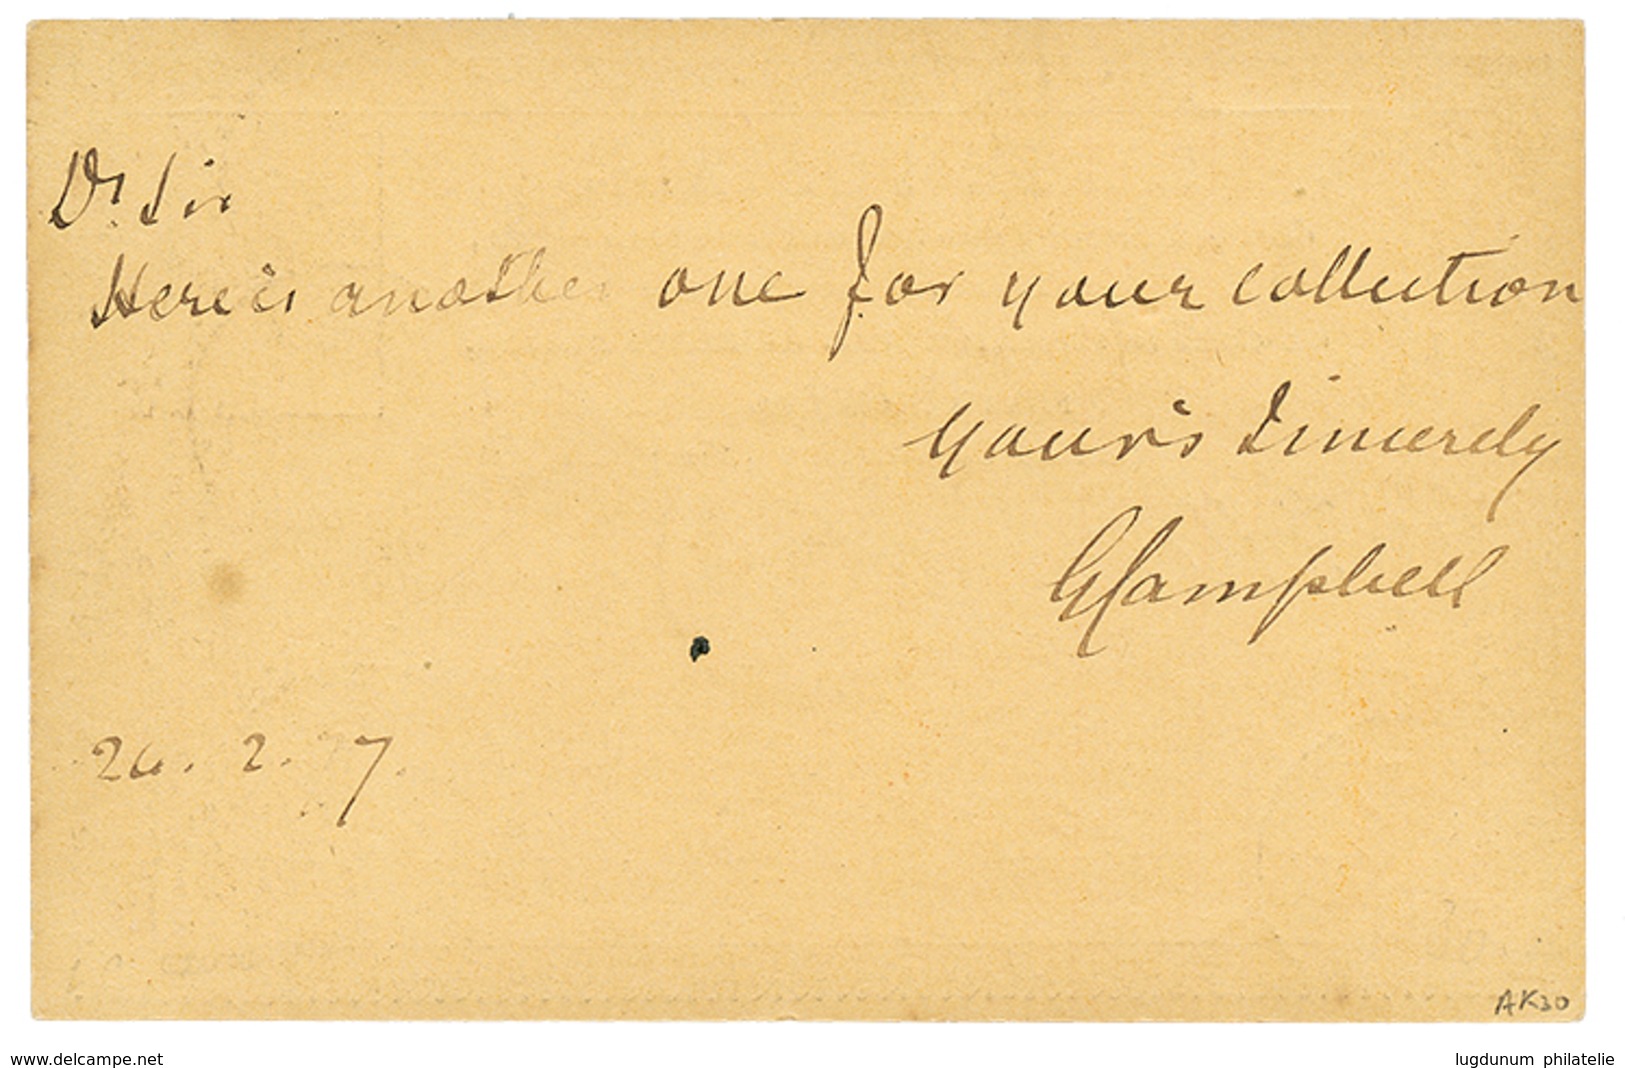 Dr. Sir
Here is another one for your collection
Your's Sincerely
GCampbell
26. 2. 97.
AK30
www.delcampe.net
lugdunum philatelie